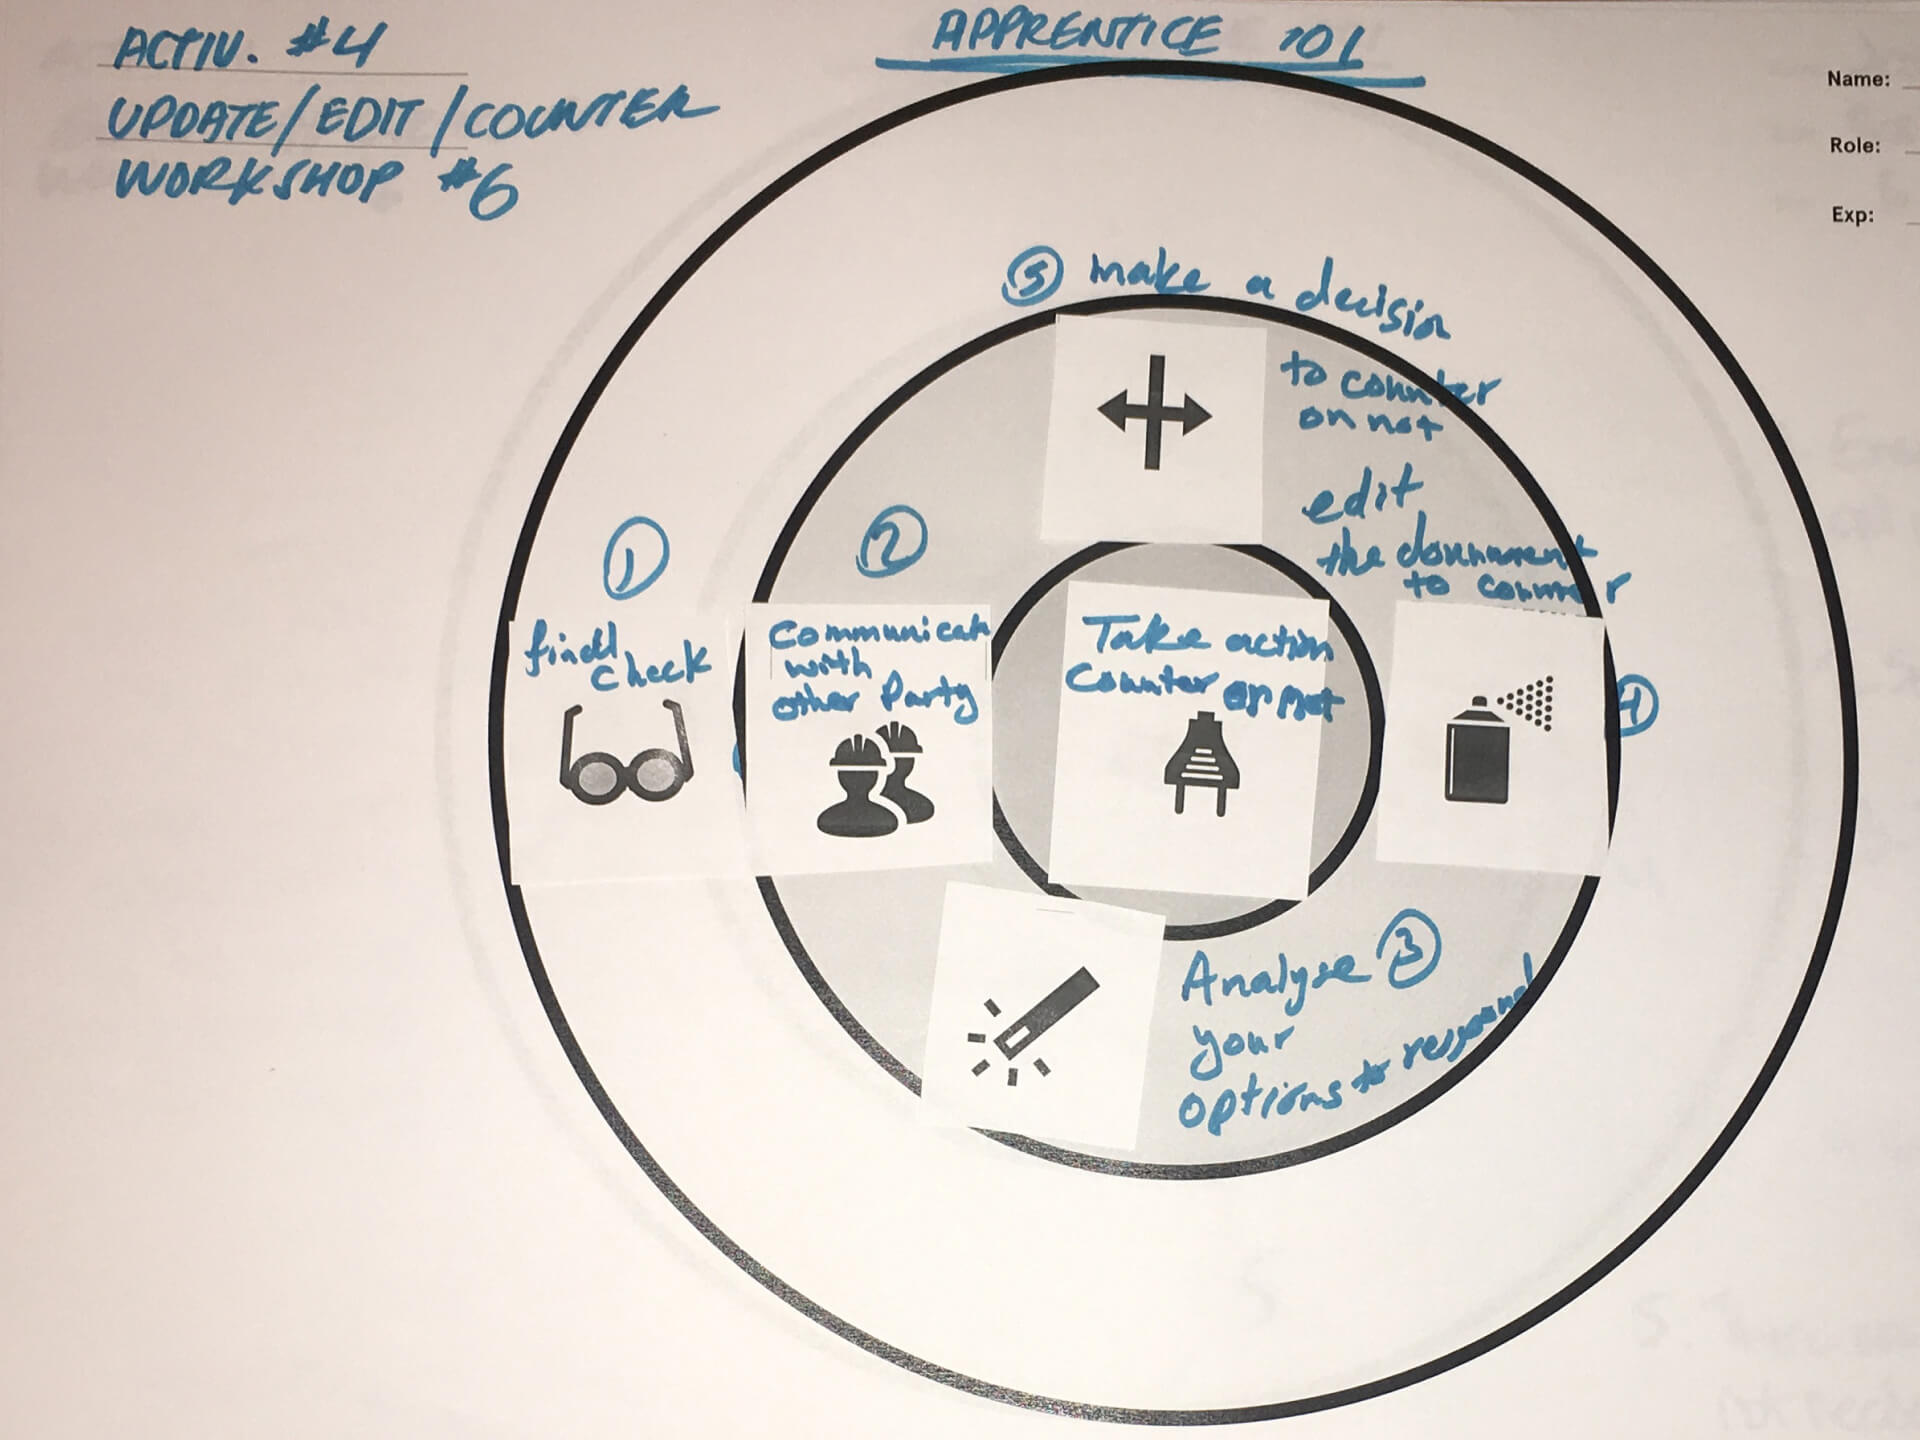 ACTIV. #4
UPDATE/EDIT/COUNTER
WORKSHOP #6
APPRENTICE 101
Name:
Role:
Exp:
5 make a decision
to counter
or not
edit
the document
to counter
4
1
final
check
2
Communicate
with
other Party
Take action
Counter or not
Analyse 3
your
options to respond